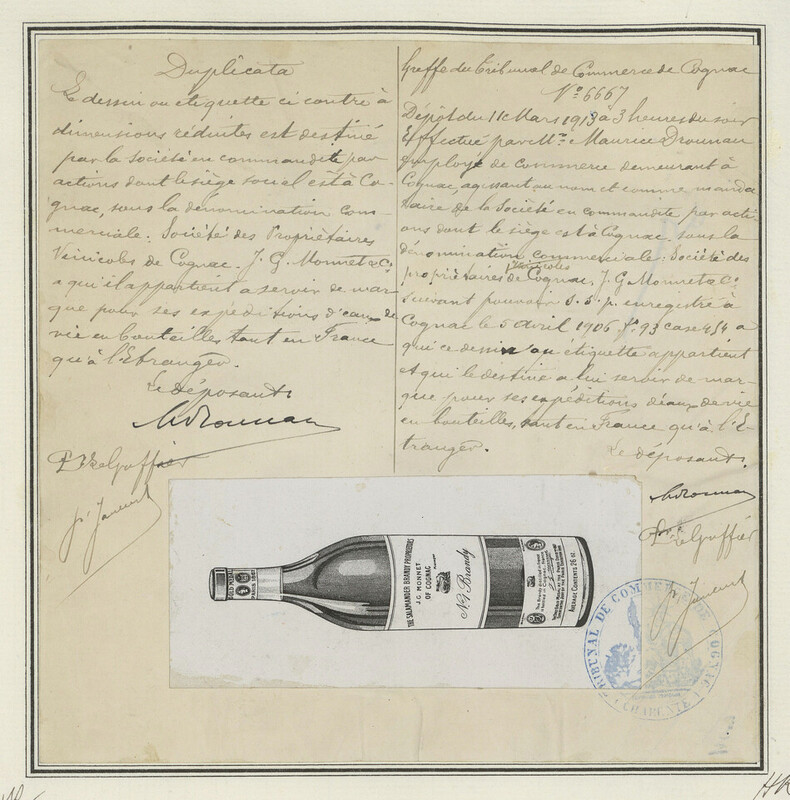 Duplicata
Le dessin ou étiquette ci contre à
dimensions réduites est destiné
par la Société en commandite par
actions dont le siège social est à Co-
gnac, sous la dénomination com-
merciale: Société des Propriétaires
Vinicoles de Cognac. J. G. Monnet & Co
à qui il appartient à servir de mar-
que pour ses expéditions d'eaux de
vie en bouteilles tant en France
qu'à l'Etranger.
Le déposant
MDrounau
Pr Le Greffier
Greffe du Tribunal de Commerce de Cognac
No 6667
Dépôt du 11 Mars 1913 à 3 heures du soir
Effectué par Mr Maurice Drounau
employé de commerce demeurant à
Cognac, agissant au nom et comme manda
taire de la Société en commandite par acti-
ons dont le siège est à Cognac sous la
dénomination commerciale: Société des
propriétaires Vinicoles de Cognac, J. G Monnet & Co
Suivant pouvoir S.S.p. enregistré à
Cognac le 5 avril 1906 fo 93 case 454 a
qui ce dessin ou étiquette appartient
et qui le destine a lui servir de mar-
que pour ses expéditions d'eaux de vie
en bouteilles, tant en France qu'à l'E-
tranger.
Le déposant.
MDrounau
Pr Le Greffier
THE SALAMANDER BRANDY PROPRIETORS
J.G. MONNET
OF COGNAC
No 1 Brandy
GOLD MEDAL
AVERAGE CONTENTS 26 OZ.
TRIBUNAL DE COMMERCE DE COGNAC
CHARENTE